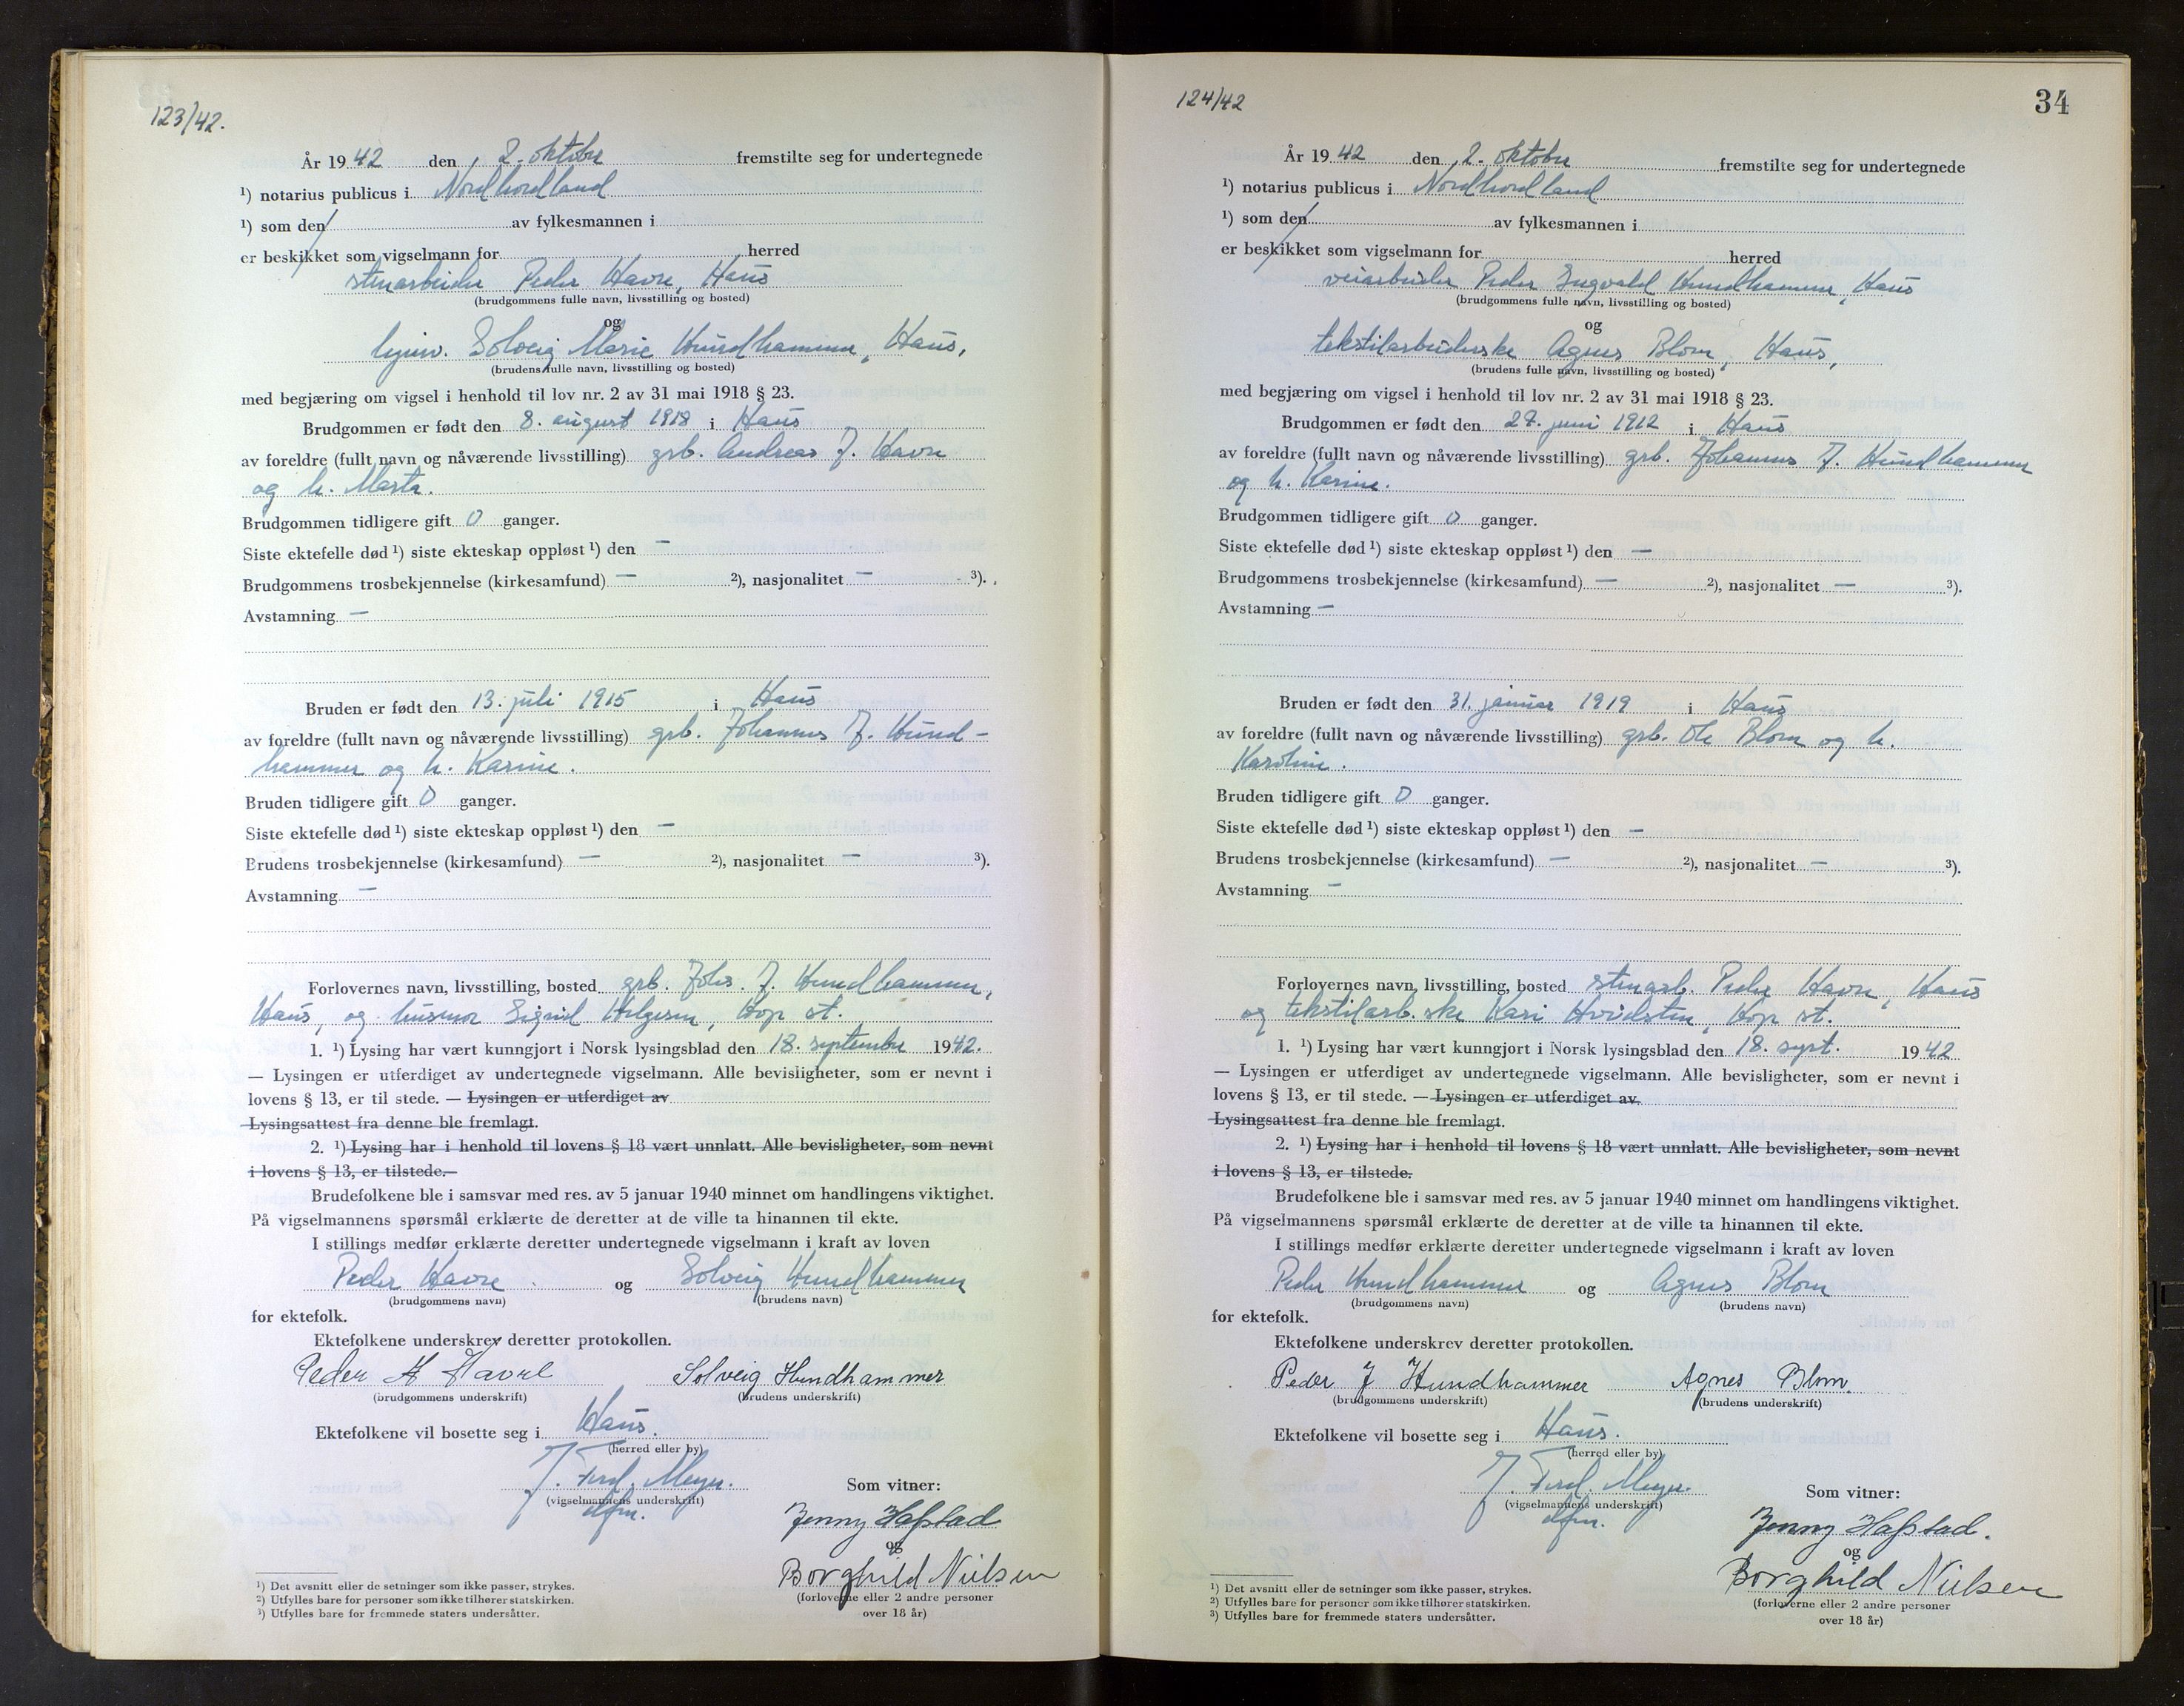 123/42.
År 1942 den 2. oktober fremstilte seg for undertegnede
¹) notarius publicus i Nordhordland
¹) som den av fylkesmannen i
er beskikket som vigselmann for herred
stenarbeider Peder Havre, Haus
(brudgommens fulle navn, livsstilling og bosted)
og
Solveig Marie Hundhammer, Haus,
(brudens fulle navn, livsstilling og bosted)
med begjæring om vigsel i henhold til lov nr. 2 av 31 mai 1918 § 23.
Brudgommen er født den 8. august 1918 i Haus
av foreldre (fullt navn og nåværende livsstilling) grb. Andreas J. Havre
og h. Marta.
Brudgommen tidligere gift 0 ganger.
Siste ektefelle død ¹) siste ekteskap oppløst ¹) den —
Brudgommens trosbekjennelse (kirkesamfund) — ²), nasjonalitet — ³).
Avstamning —
Bruden er født den 13. juli 1915 i Haus
av foreldre (fullt navn og nåværende livsstilling) grb. Johannes J. Hund-
hammer og h. Karine.
Bruden tidligere gift 0 ganger.
Siste ektefelle død ¹) siste ekteskap oppløst ¹) den —
Brudens trosbekjennelse (kirkesamfund) — ²), nasjonalitet — ³).
Avstamning —
Forlovernes navn, livsstilling, bosted grb. Johs. J. Hundhammer,
Haus, og husmor Sigrid Helgesen, Hop st.
1. ¹) Lysing har vært kunngjort i Norsk lysingsblad den 18. september 1942.
— Lysingen er utferdiget av undertegnede vigselmann. Alle bevisligheter, som er nevnt i
lovens § 13, er til stede. — Lysingen er utferdiget av
Lysingsattest fra denne ble fremlagt.
2. ¹) Lysing har i henhold til lovens § 18 vært unnlatt. Alle bevisligheter, som nevnt
i lovens § 13, er tilstede.—
Brudefolkene ble i samsvar med res. av 5 januar 1940 minnet om handlingens viktighet.
På vigselmannens spørsmål erklærte de deretter at de ville ta hinannen til ekte.
I stillings medfør erklærte deretter undertegnede vigselmann i kraft av loven
Peder Havre og Solveig Hundhammer
(brudgommens navn) (brudens navn)
for ektefolk.
Ektefolkene underskrev deretter protokollen.
Peder A Havre Solveig Hundhammer
(brudgommens underskrift) (brudens underskrift)
Ektefolkene vil bosette seg i Haus.
(herred eller by)
J. Ferd. Meyer.
(vigselmannens underskrift)
Som vitner:
Jenny Hafstad
og
Borghild Nielsen
(forloverne eller 2 andre personer
over 18 år)
¹) Det avsnitt eller de setninger som ikke passer, strykes.
²) Utfylles bare for personer som ikke tilhører statskirken.
³) Utfylles bare for fremmede staters undersåtter.
124/42
34
År 1942 den 2. oktober fremstilte seg for undertegnede
¹) notarius publicus i Nordhordland
¹) som den av fylkesmannen i
er beskikket som vigselmann for herred
veiarbeider Peder Ingvald Hundhammer, Haus
(brudgommens fulle navn, livsstilling og bosted)
og
tekstilarbeiderske Agnes Blom, Haus,
(brudens fulle navn, livsstilling og bosted)
med begjæring om vigsel i henhold til lov nr. 2 av 31 mai 1918 § 23.
Brudgommen er født den juni 1912 i Haus
av foreldre (fullt navn og nåværende livsstilling) grb. Johannes J. Hundhammer
og h. Karine.
Brudgommen tidligere gift 0 ganger.
Siste ektefelle død ¹) siste ekteskap oppløst ¹) den —
Brudgommens trosbekjennelse (kirkesamfund) — ²), nasjonalitet — ³).
Avstamning —
Bruden er født den 31. januar 1919 i Haus
av foreldre (fullt navn og nåværende livsstilling) grb. Ole Blom og h.
Karoline.
Bruden tidligere gift 0 ganger.
Siste ektefelle død ¹) siste ekteskap oppløst ¹) den —
Brudens trosbekjennelse (kirkesamfund) — ²), nasjonalitet — ³).
Avstamning —
Forlovernes navn, livsstilling, bosted stenarb. Peder Havre, Haus
og tekstilarb.ske Kari Hvidsten, Hop st.
1. ¹) Lysing har vært kunngjort i Norsk lysingsblad den 18. sept. 1942
— Lysingen er utferdiget av undertegnede vigselmann. Alle bevisligheter, som er nevnt i
lovens § 13, er til stede. — Lysingen er utferdiget av
Lysingsattest fra denne ble fremlagt.
2. ¹) Lysing har i henhold til lovens § 18 vært unnlatt. Alle bevisligheter, som nevnt
i lovens § 13, er tilstede.
Brudefolkene ble i samsvar med res. av 5 januar 1940 minnet om handlingens viktighet.
På vigselmannens spørsmål erklærte de deretter at de ville ta hinannen til ekte.
I stillings medfør erklærte deretter undertegnede vigselmann i kraft av loven
Peder Hundhammer og Agnes Blom
(brudgommens navn) (brudens navn)
for ektefolk.
Ektefolkene underskrev deretter protokollen.
Peder J Hundhammer Agnes Blom.
(brudgommens underskrift) (brudens underskrift)
Ektefolkene vil bosette seg i Haus.
(herred eller by)
J. Ferd. Meyer.
(vigselmannens underskrift)
Som vitner:
Jenny Hafstad.
og
Borghild Nielsen
(forloverne eller 2 andre personer
over 18 år)
¹) Det avsnitt eller de setninger som ikke passer, strykes.
²) Utfylles bare for personer som ikke tilhører statskirken.
³) Utfylles bare for fremmede staters undersåtter.